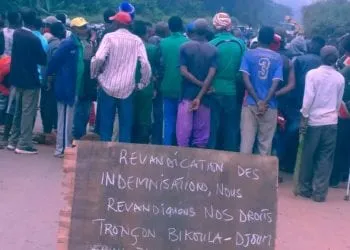 REVANDICATION DES
INDEMNISATIONS, NOUS
REVANDIQUONS NOS DROITS
TRONÇON BIKOULA-DJOUM
5